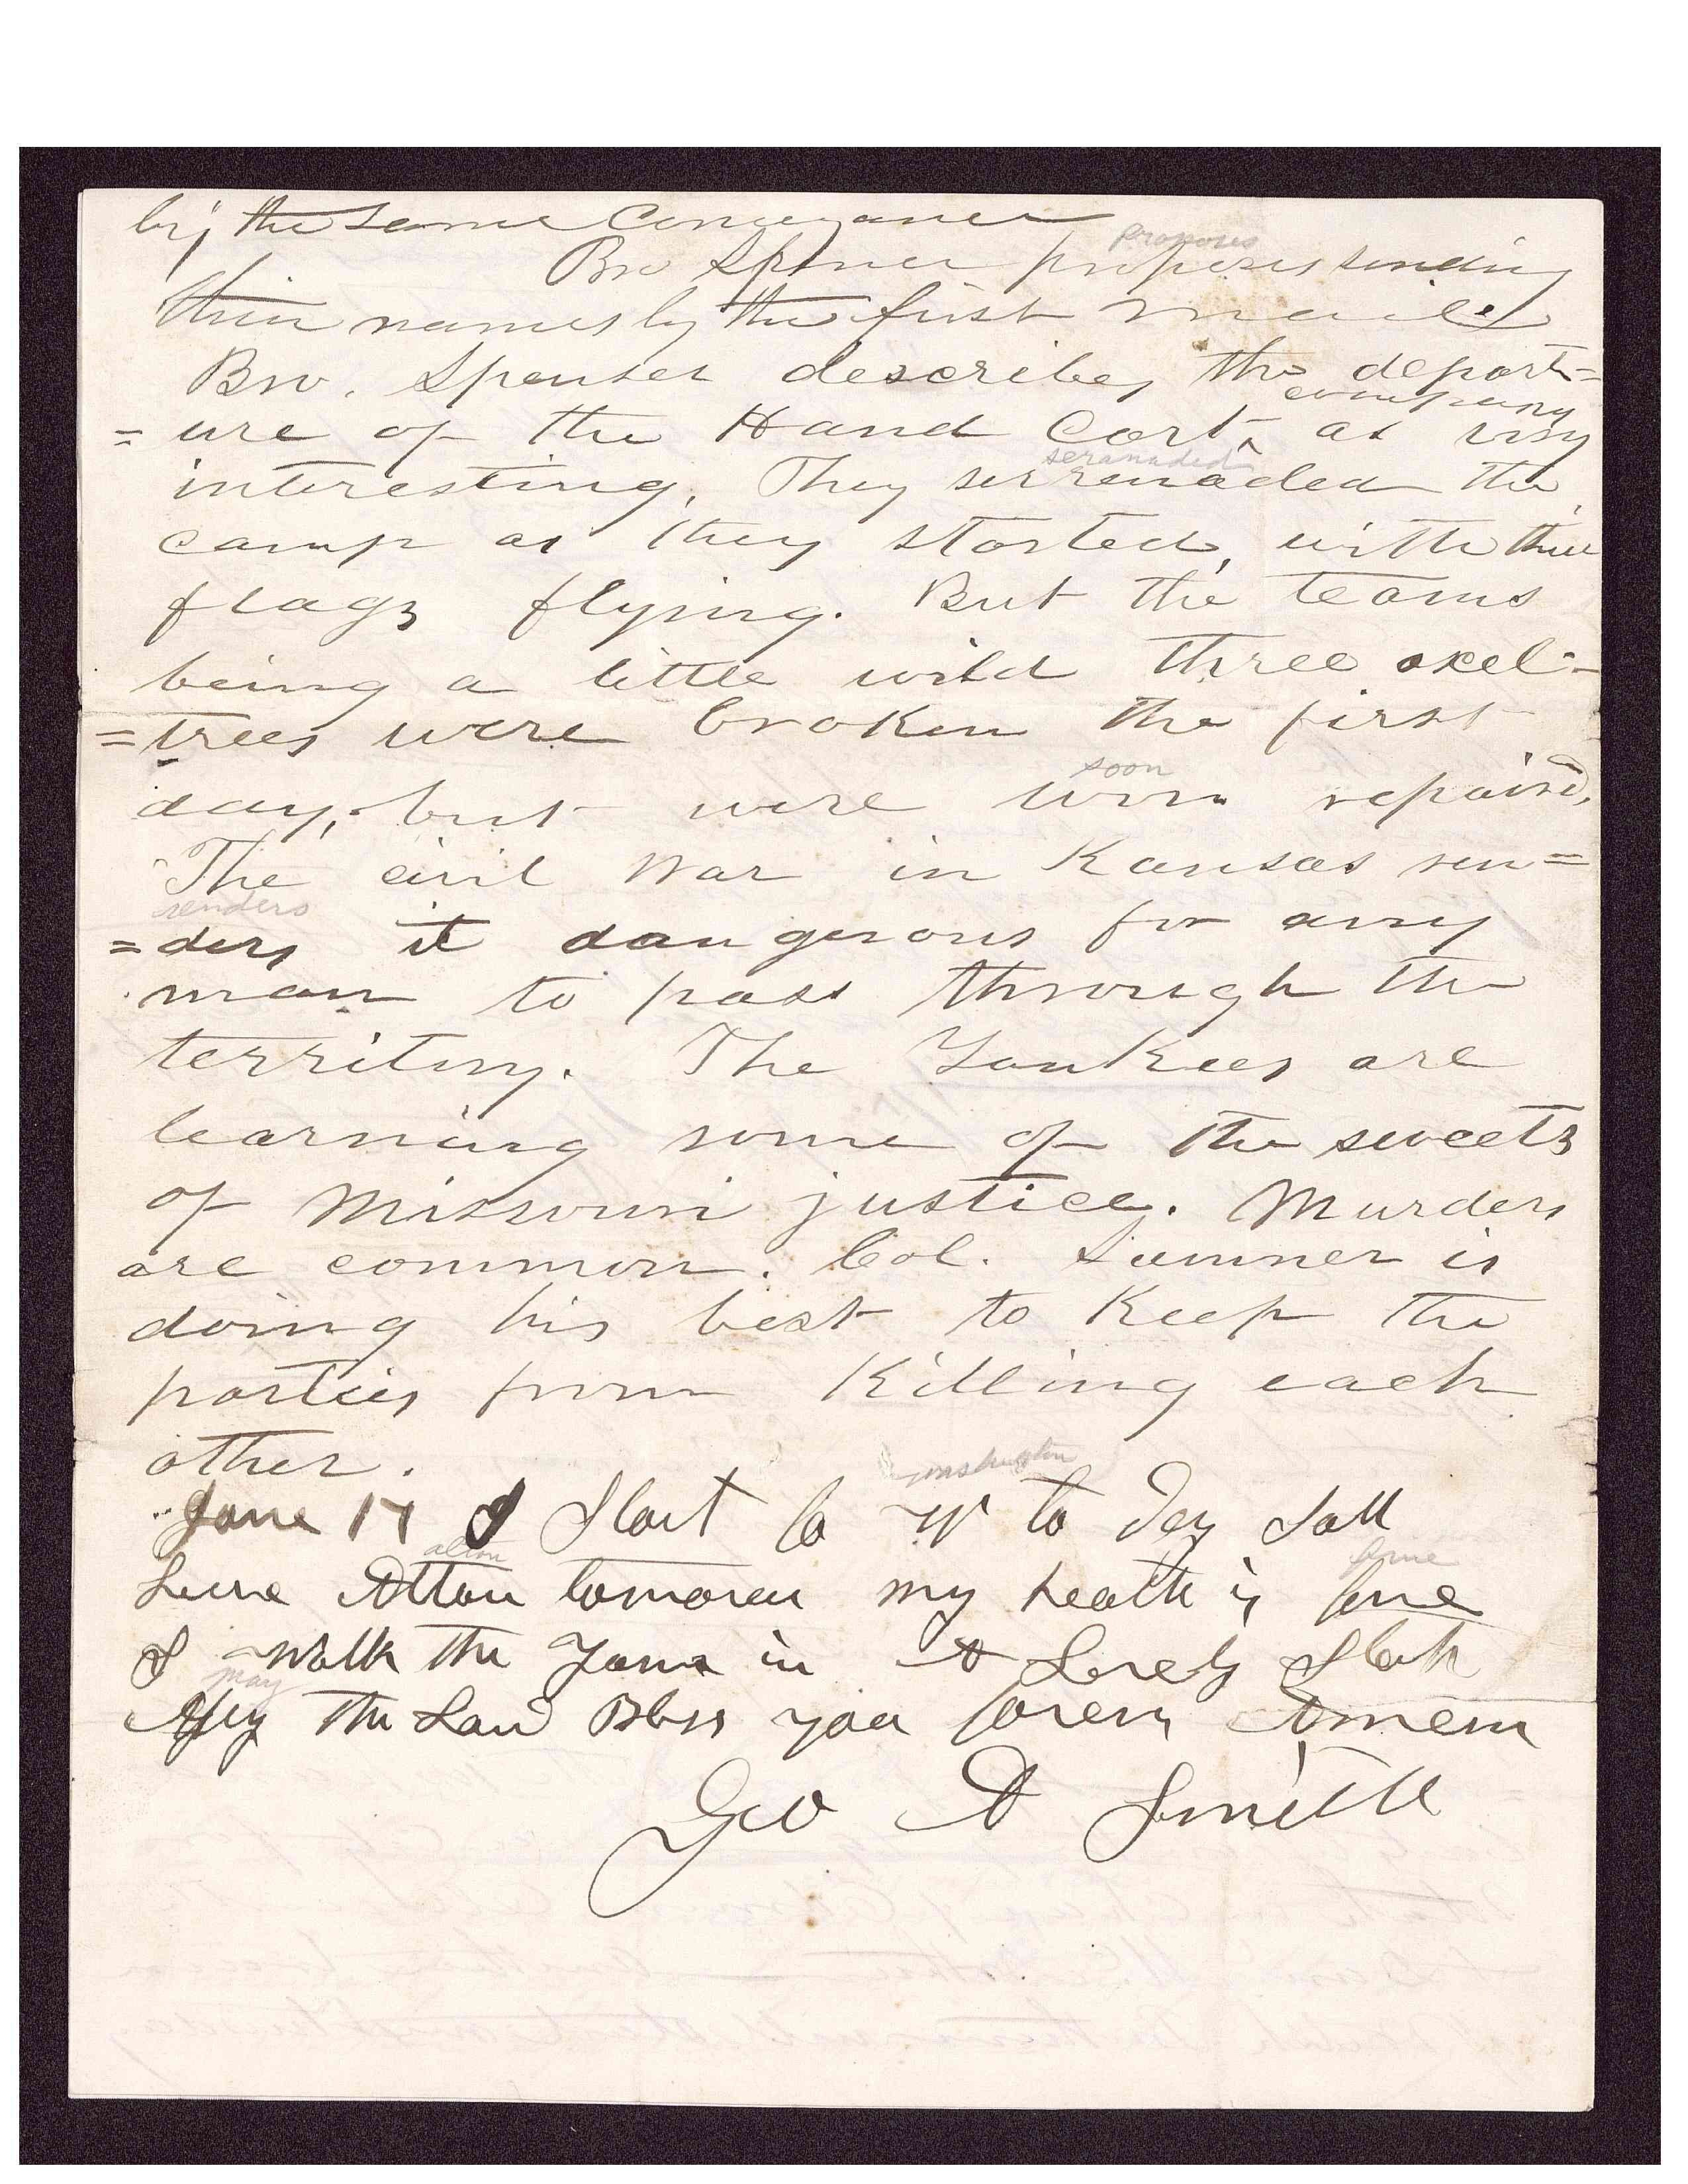 by the same Conveyance
proposes
Bro Spencer proposes sending
their names by the first mail
Bro. Spenser describes the depart=
company
=ure of the Hand Cart ‸ as very
seranaded
interesting. They serrenaded the
camp as they started, with their
flags flying. But the teams
being a little wild three axel=
=trees were broken the first
soon
day, but were soon repaired,
The civil war in Kansas ren=
renders
=ders it dangerous for any
man to pass through the
territory. The Yankees are
learning some of the sweets
of Missouri justice. Murders
are common. Col. Sumner is
doing his best to Keep the
parties from Killing each
other.
washington
June 17 I Start to W to Day
alton
Atton tomorou my health is
I walk the in A
may
The Lord Bless you Amem
Geo A Smith